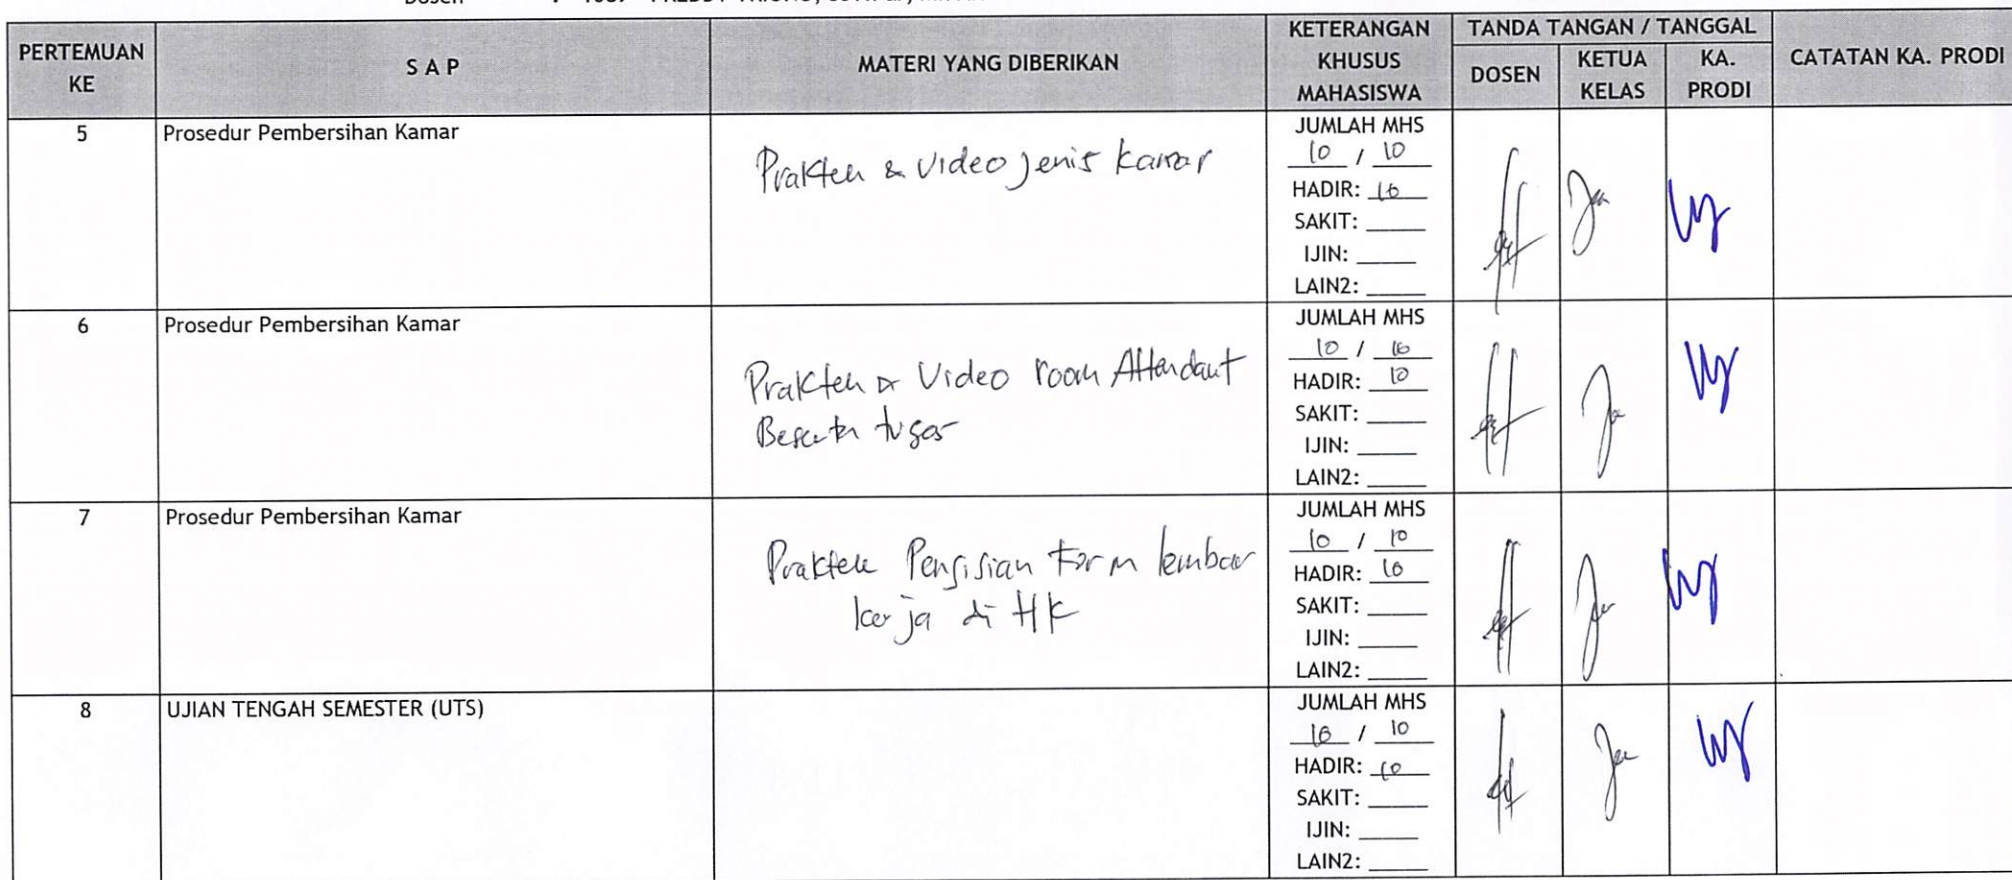 Dosen
PERTEMUAN KE
S A P
MATERI YANG DIBERIKAN
KETERANGAN KHUSUS MAHASISWA
TANDA TANGAN / TANGGAL
DOSEN
KETUA KELAS
KA. PRODI
CATATAN KA. PRODI
5
Prosedur Pembersihan Kamar
Praktek & Video Jenis Kamar
JUMLAH MHS
10 / 10
HADIR: 10
SAKIT:
IJIN:
LAIN2:
6
Prosedur Pembersihan Kamar
Praktek & Video room Attendant
Beserta tugas
JUMLAH MHS
10 / 10
HADIR: 10
SAKIT:
IJIN:
LAIN2:
7
Prosedur Pembersihan Kamar
Praktek Pengisian Form lembar
kerja di HK
JUMLAH MHS
10 / 10
HADIR: 10
SAKIT:
IJIN:
LAIN2:
8
UJIAN TENGAH SEMESTER (UTS)
JUMLAH MHS
10 / 10
HADIR: 10
SAKIT:
IJIN:
LAIN2: